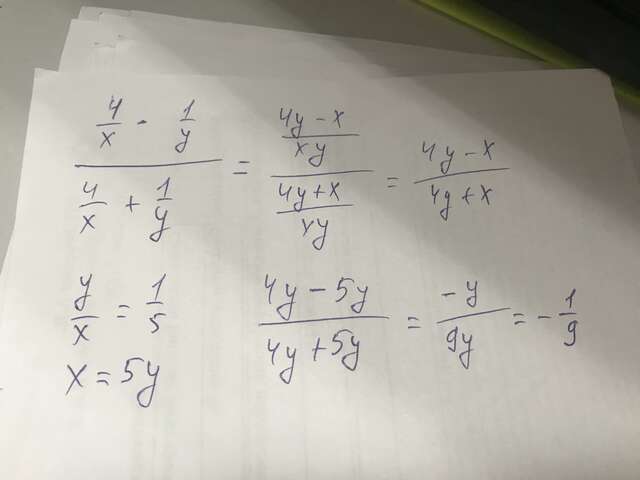 4/x - 1/y / 4/x + 1/y = 4y - x/xy / 4y + x/xy = 4y - x / 4y + x
y/x = 1/5
x = 5y
4y - 5y / 4y + 5y = -y / 9y = - 1/9